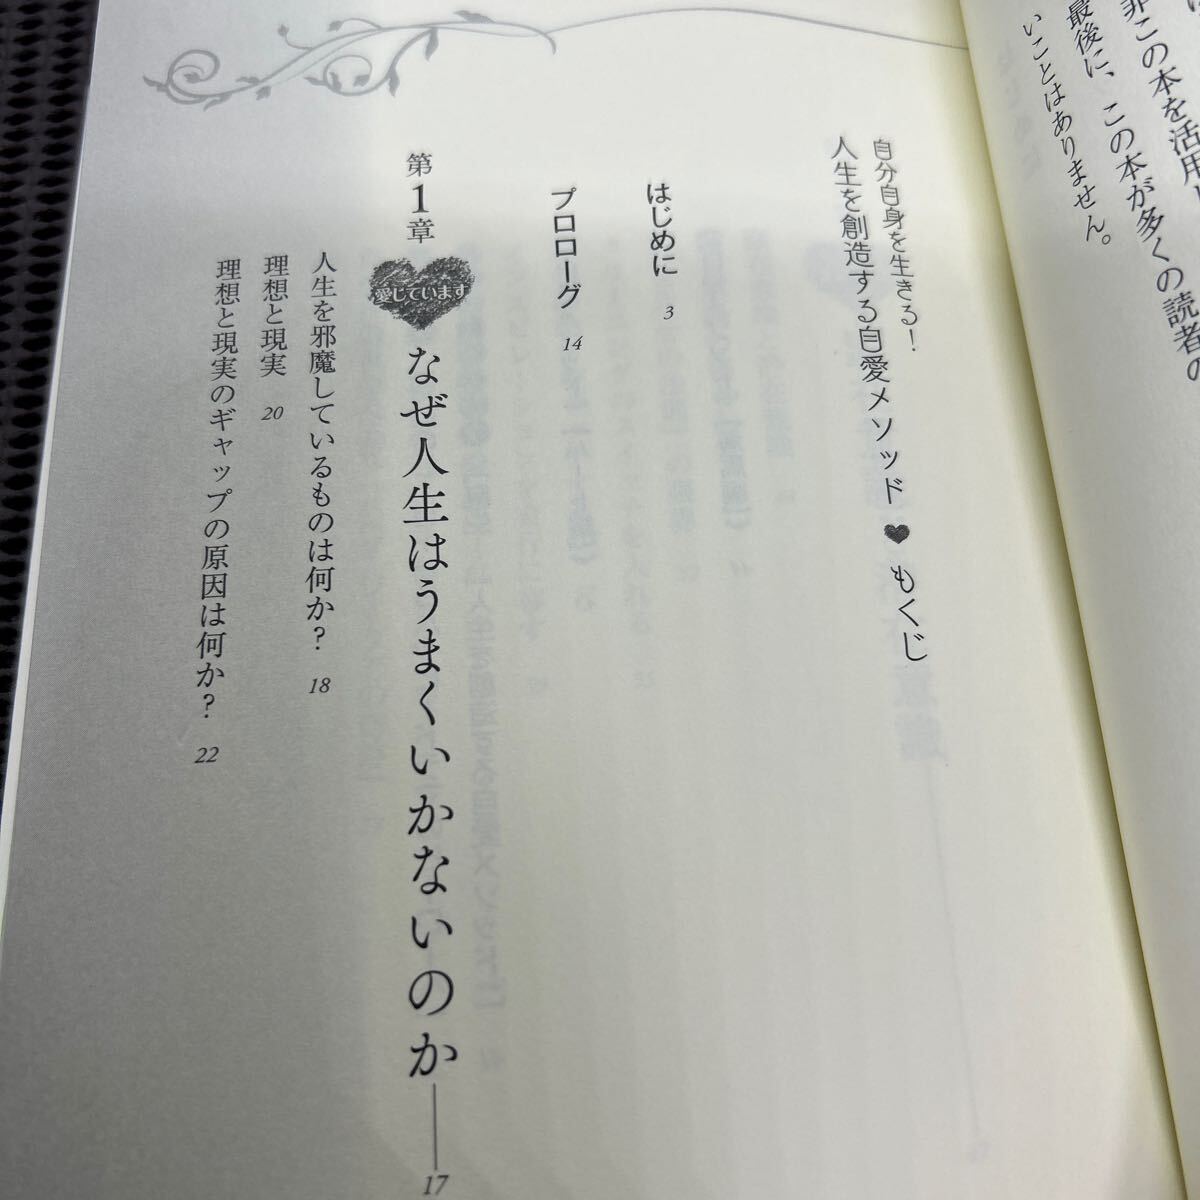 この本を活用し
最後に、この本が多くの読者の
いことはありません。
自分自身を生きる！
人生を創造する自愛メソッド♥もくじ
はじめに 3
プロローグ 14
第1章 愛しています なぜ人生はうまくいかないのか――17
人生を邪魔しているものは何か？ 18
理想と現実 20
理想と現実のギャップの原因は何か？ 22